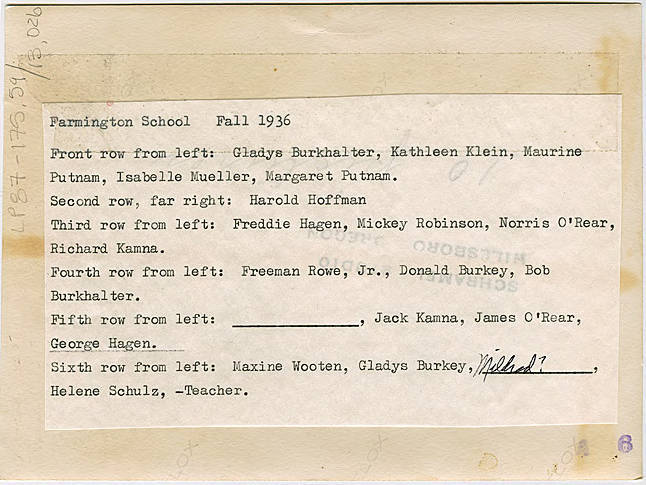 LP87-175,59/13,026
Farmington School   Fall 1936
Front row from left:  Gladys Burkhalter, Kathleen Klein, Maurine
Putnam, Isabelle Mueller, Margaret Putnam.
Second row, far right:  Harold Hoffman
Third row from left:  Freddie Hagen, Mickey Robinson, Norris O'Rear,
Richard Kamna.
Fourth row from left:  Freeman Rowe, Jr., Donald Burkey, Bob
Burkhalter.
Fifth row from left:  ______________, Jack Kamna, James O'Rear,
George Hagen.
Sixth row from left:  Maxine Wooten, Gladys Burkey, Mildred?______,
Helene Schulz, -Teacher.
HILLSBORO OREGON
6